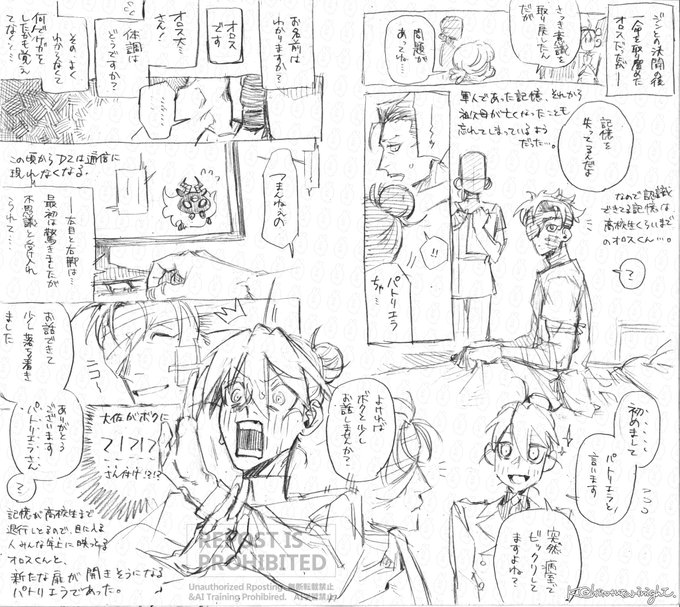 ジンとの決闘の後
一命を取り留めた
オロスだが──
さっき意識を
取り戻したん
だが
問題が
あってね…
記憶を
失ってるんだよ
軍人であった記憶、それから
祖父母が亡くなったことも
忘れてしまっているよう
だった…。
なので認識
できてる記憶は
高校生くらいまで
のオロスくん…。
?
!!
パトリエラ
ちゃ…
初めまして
パトリエラと
言います
突然病室で
ビックリして
ますよね?
よければ
ボクと少し
お話しませんか?
お名前は
わかりますか?
オロス
です
オロス…
さん!
体調は
どうですか?
その よく
わからなくて
何でケガを
したかも覚え
てなく…
この頃からDZは通信に
現れなくなる。
つまんねぇの
──右目と右腕は…
最初は驚きましたが
不思議と受け入れ
られて…
お話できて
少し落ち着き
ました
ニコー
ありがとう
ございます
パトリエラさん
?
大佐がボクに
さん付け!?!?
記憶が高校生まで
退行してるので、見える
人みんな年上に映ってる
オロスくんと、
新たな扉が開きそうになる
パトリエラであった。
REPOST IS
PROHIBITED
Unauthorized Rposting 無断転載禁止
&AI Training Prohibited. AI学習禁止